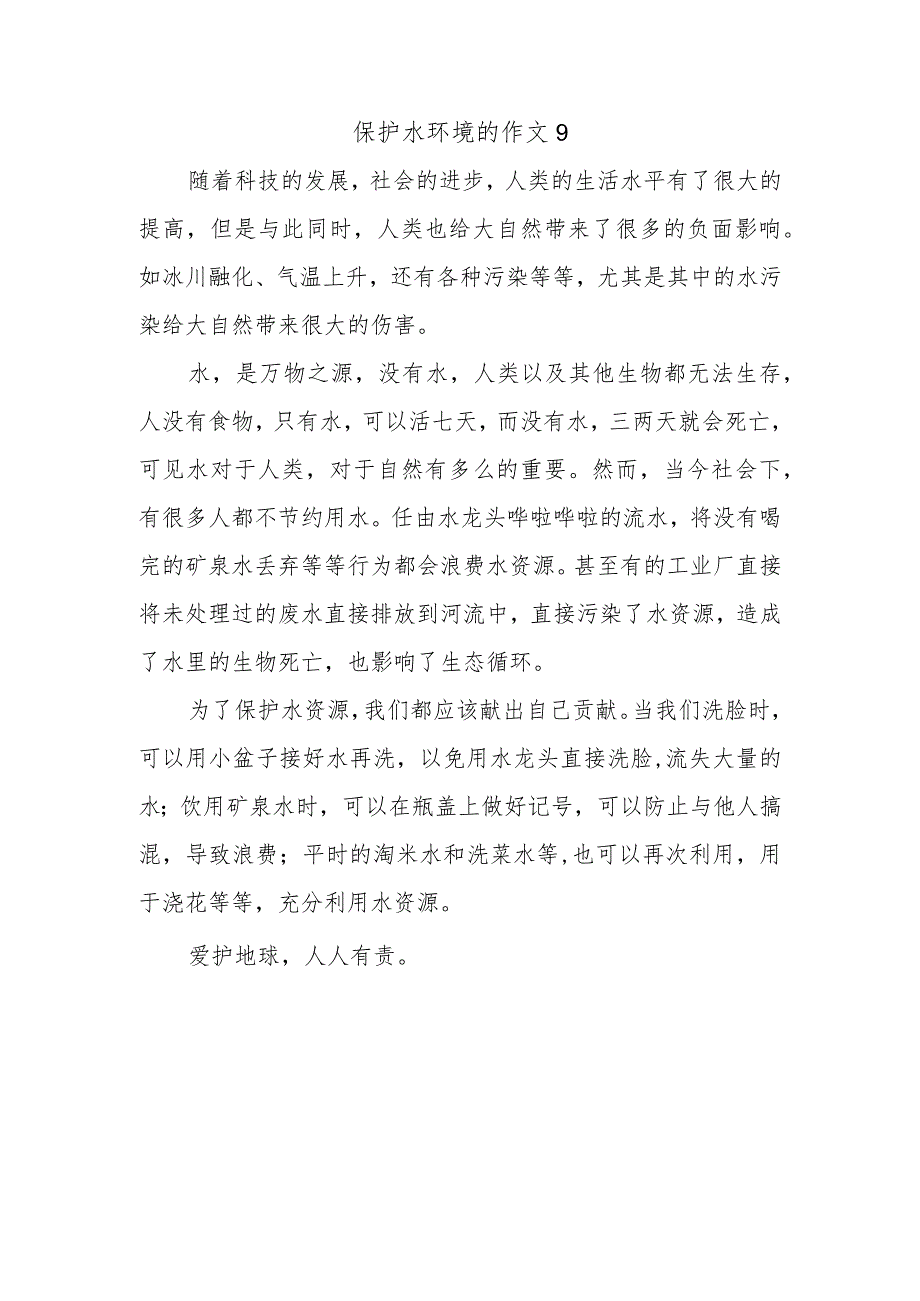 保护水环境的作文9
随着科技的发展，社会的进步，人类的生活水平有了很大的
提高，但是与此同时，人类也给大自然带来了很多的负面影响。
如冰川融化、气温上升，还有各种污染等等，尤其是其中的水污
染给大自然带来很大的伤害。
水，是万物之源，没有水，人类以及其他生物都无法生存，
人没有食物，只有水，可以活七天，而没有水，三两天就会死亡，
可见水对于人类，对于自然有多么的重要。然而，当今社会下，
有很多人都不节约用水。任由水龙头哗啦哗啦的流水，将没有喝
完的矿泉水丢弃等等行为都会浪费水资源。甚至有的工业厂直接
将未处理过的废水直接排放到河流中，直接污染了水资源，造成
了水里的生物死亡，也影响了生态循环。
为了保护水资源,我们都应该献出自己贡献。当我们洗脸时，
可以用小盆子接好水再洗，以免用水龙头直接洗脸,流失大量的
水；饮用矿泉水时，可以在瓶盖上做好记号，可以防止与他人搞
混，导致浪费；平时的淘米水和洗菜水等,也可以再次利用，用
于浇花等等，充分利用水资源。
爱护地球，人人有责。